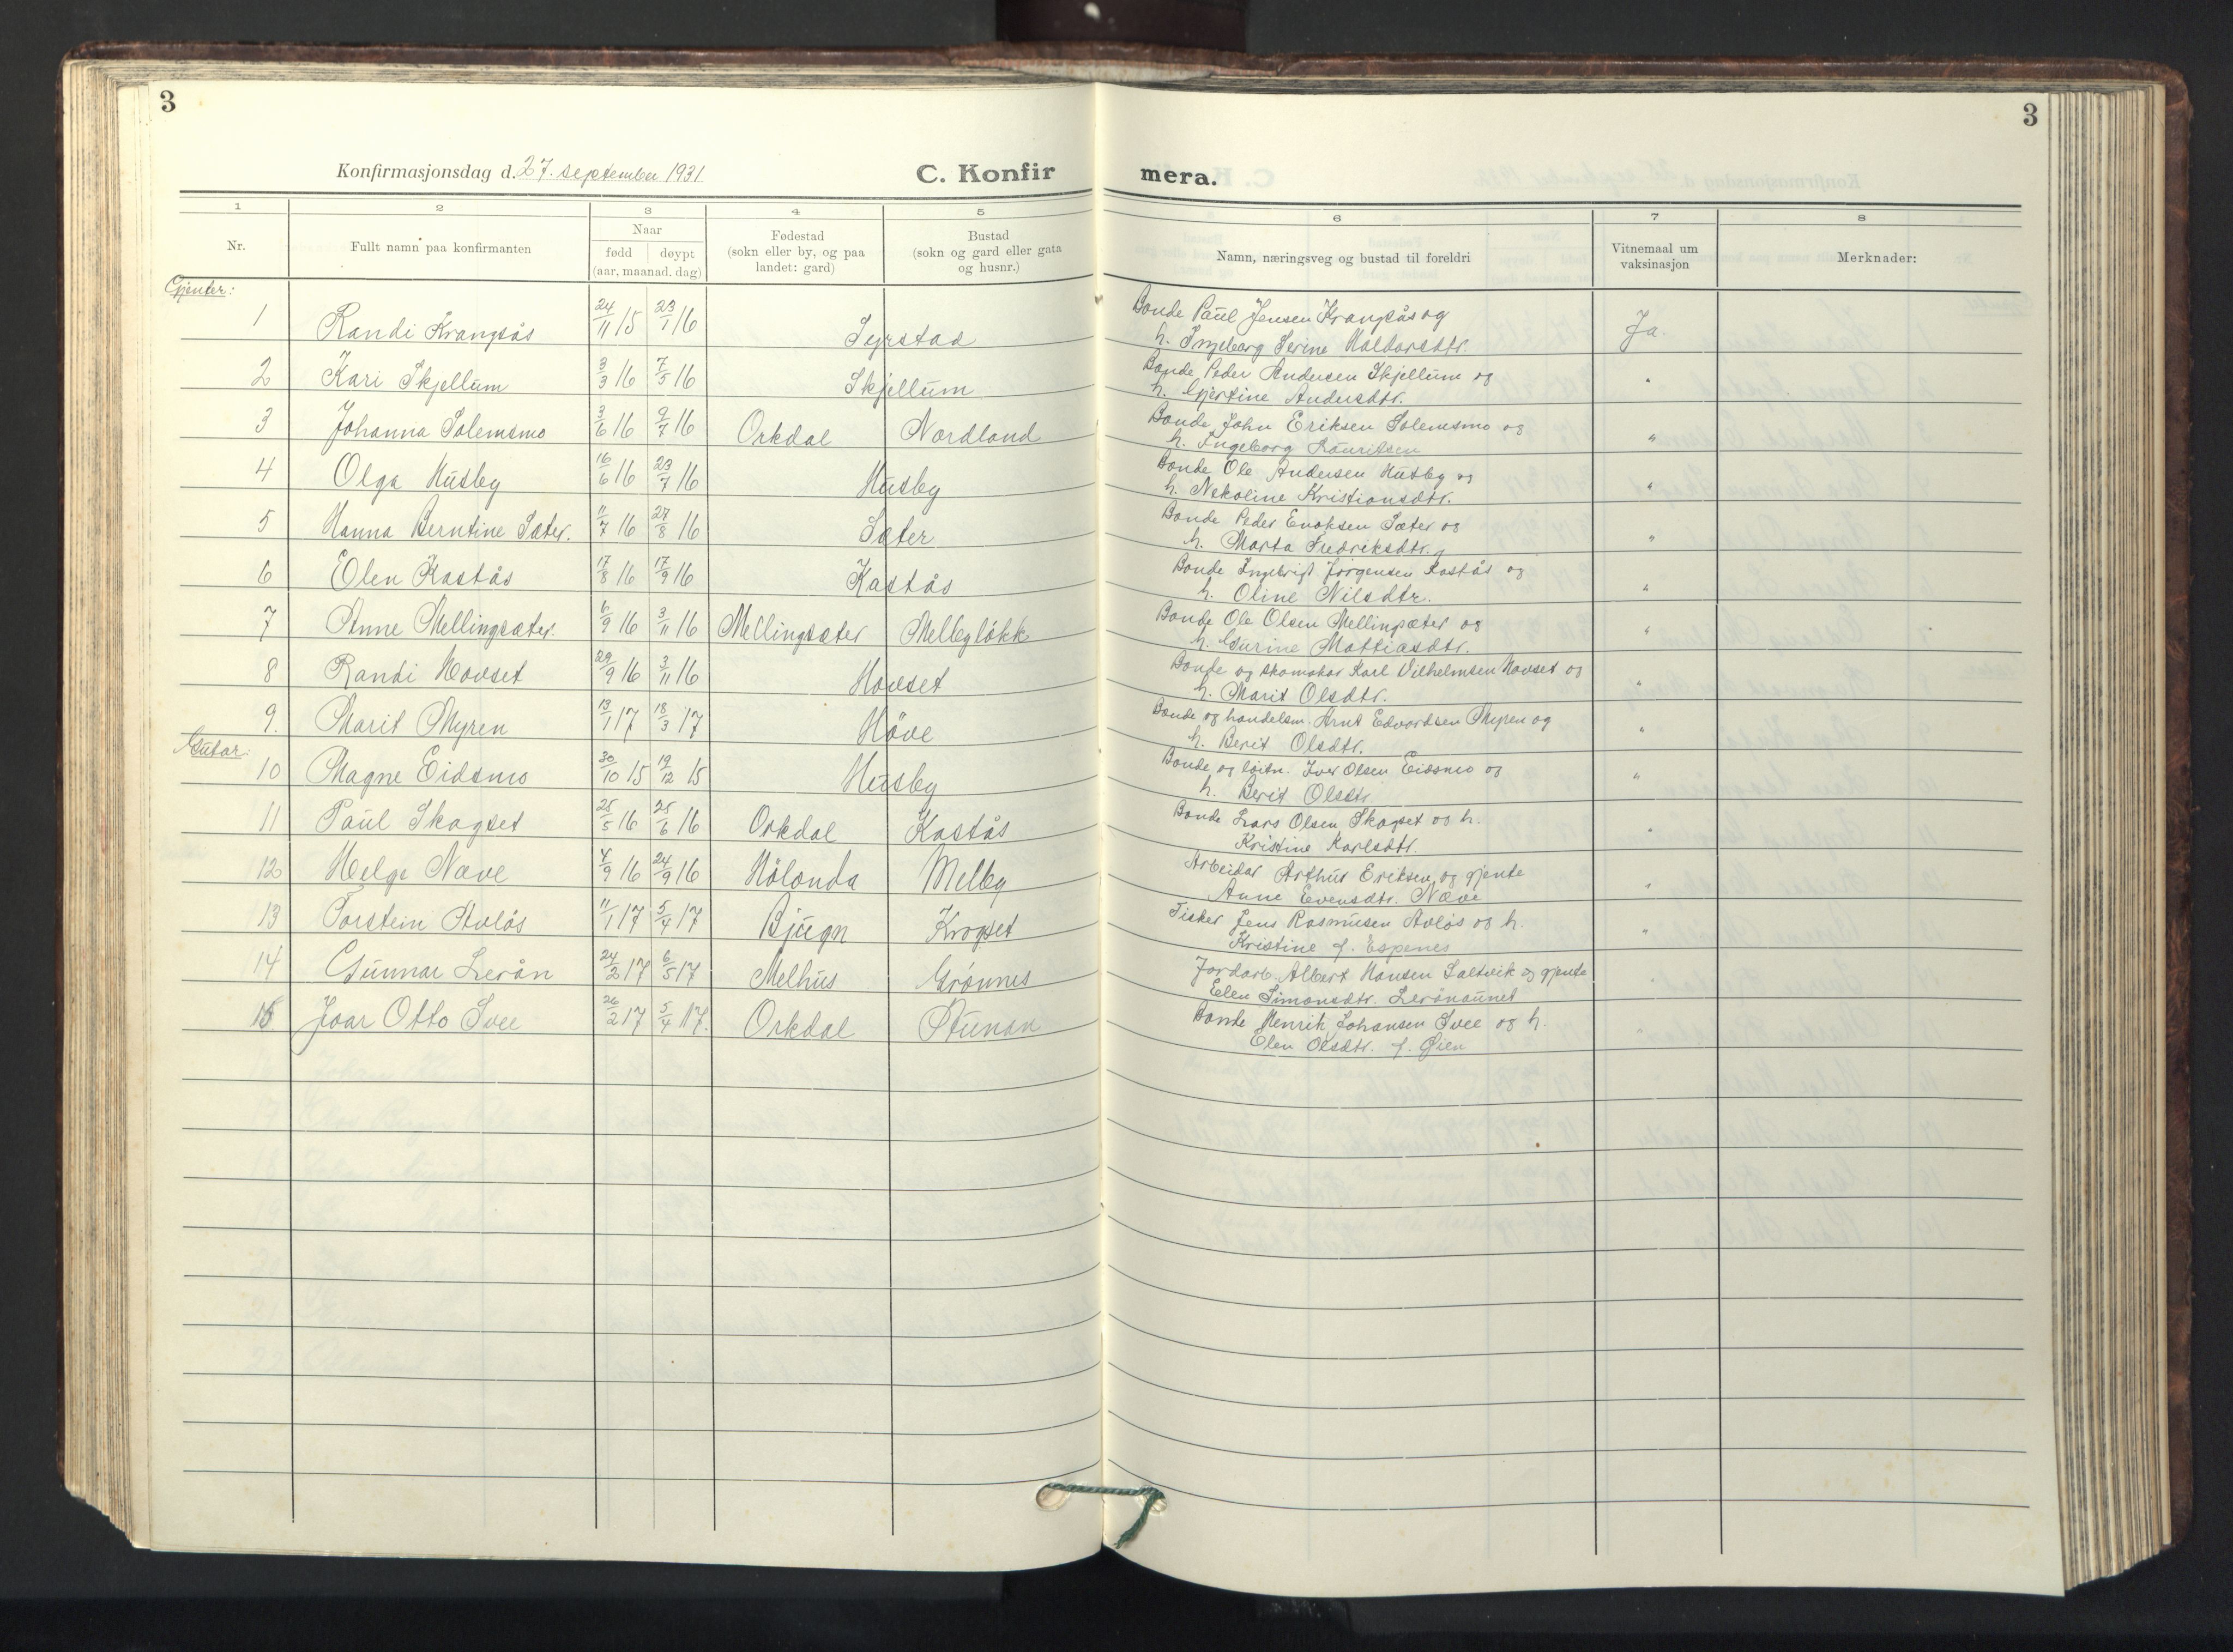 3
3
Konfirmasjonsdag d. 27. september 1931
C. Konfir
mera.
1 2 3 4 5 6 7 8
Nr.
Fullt namn paa konfirmanten
Naar
fødd døypt
(aar, maanad. dag)
Fødestad
(sokn eller by, og paa
landet: gard)
Bustad
(sokn og gard eller gata
og husnr.)
Namn, næringsveg og bustad til foreldri
Vitnemaal um
vaksinasjon
Merknader:
Gjenter:
1 Randi Krangsås 24/11 15 23/1 16 Syrstad Bonde Paul Jensen Krangsås og
h. Ingeborg Serine Haldorsdtr. Ja.
2 Kari Skjellum 3/3 16 7/5 16 Skjellum Bonde Peder Andersen Skjellum og
h. Gjertine Andersdtr. "
3 Johanna Solemsmo 3/6 16 9/7 16 Orkdal Nordland Bonde John Eriksen Solemsmo og
h. Ingeborg Lauritsen "
4 Olga Husby 16/6 16 23/7 16 Husby Bonde Ole Andersen Husby og
h. Nekoline Kristiansdtr. "
5 Hanna Berntine Sæter. 11/7 16 27/8 16 Sæter Bonde Peder Enoksen Sæter og
h. Marta Fredriksdtr. "
6 Elen Kastås 17/8 16 17/9 16 Kastås Bonde Ingebrigt Jørgensen Kastås og
h. Oline Nilsdtr. "
7 Anne Mellingsæter. 6/9 16 3/11 16 Mellingsæter Melbyløkk Bonde Ole Olsen Mellingsæter og
h. Gurine Mattiasdtr. "
8 Randi Hovset 29/9 16 3/11 16 Hovset Bonde og skomaker Karl Vilhelmsen Hovset og
h. Marit Olsdtr. "
9. Marit Myren 13/1 17 18/3 17 Höve Bonde og handelsm. Arnt Edvardsen Myren og
h. Berit Olsdtr. "
Gutar:
10 Magne Eidsmo 30/10 15 19/12 15 Husby Bonde og løitn. Iver Olsen Eidsmo og
h. Berit Olsdtr. "
11 Paul Skogset 25/5 16 25/6 16 Orkdal Kastås Bonde Lars Olsen Skogset og h.
Kristine Karlsdtr. "
12 Helge Næve 4/9 16 24/9 16 Hölonda Melby Arbeidar Arthur Eriksen og gjente
Anne Evensdtr. Næve "
13 Torstein Avløs 11/1 17 5/4 17 Bjugn Krogset Fisker Jens Rasmusen Avløs og h.
Kristine f. Espenes "
14 Gunnar Lerån 24/2 17 6/5 17 Melhus Grönnes Jordarb. Albert Hansen Saltvik og gjente
Elen Simonsdtr. Lerånaunet "
15 Joar Otto Svee 26/2 17 5/4 17. Orkdal Aunan Bonde Henrik Johansen Svee og h.
Elen Olsdtr. f. Øien "